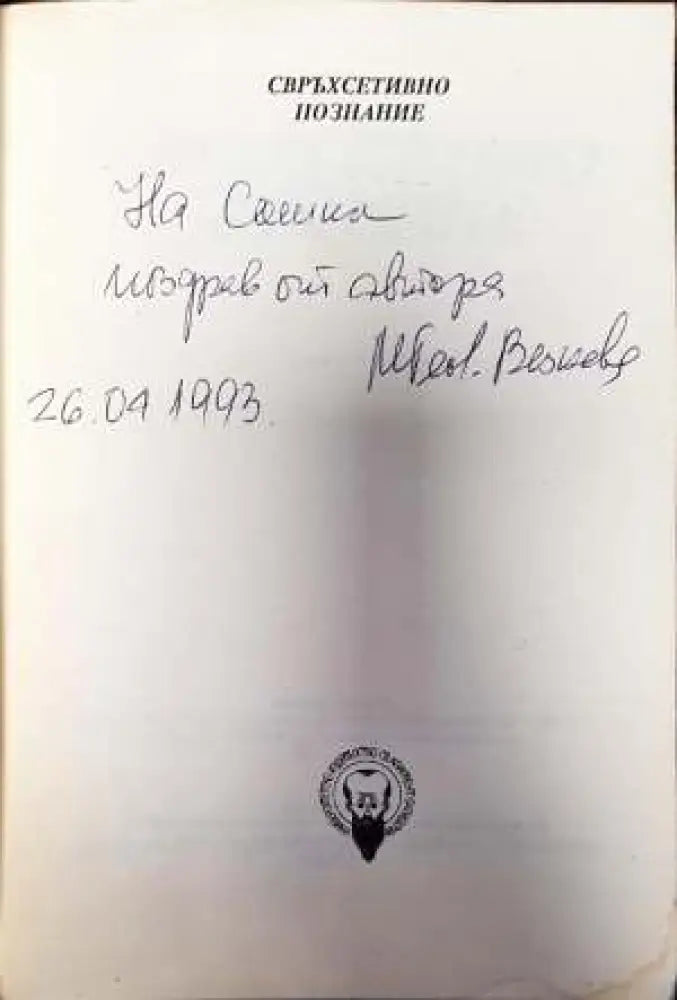 СВРЪХСЕТИВНО
ПОЗНАНИЕ
На Сашка
поздрав от автора
26.04 1993.